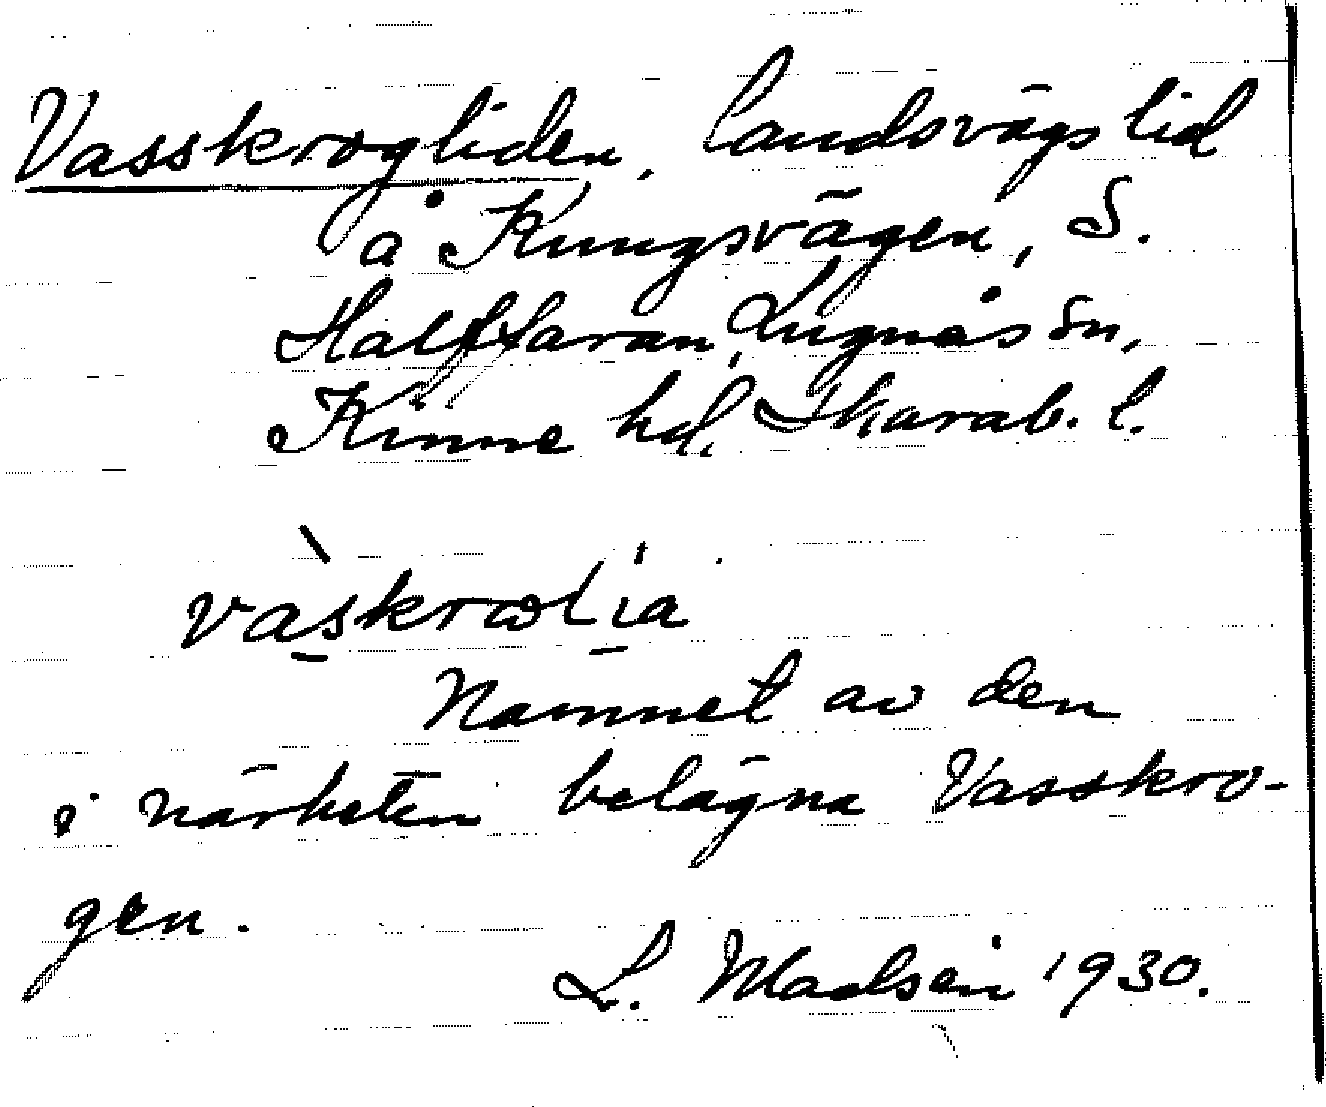 Vasskrogliden, landsvägslid
å Kungsvägen, S.
Halffaran, Lugnås sn,
Kinne hd, Skarab. l.
Namnet av den
i närheten belägna Vasskro-
gen.
L. 1930.